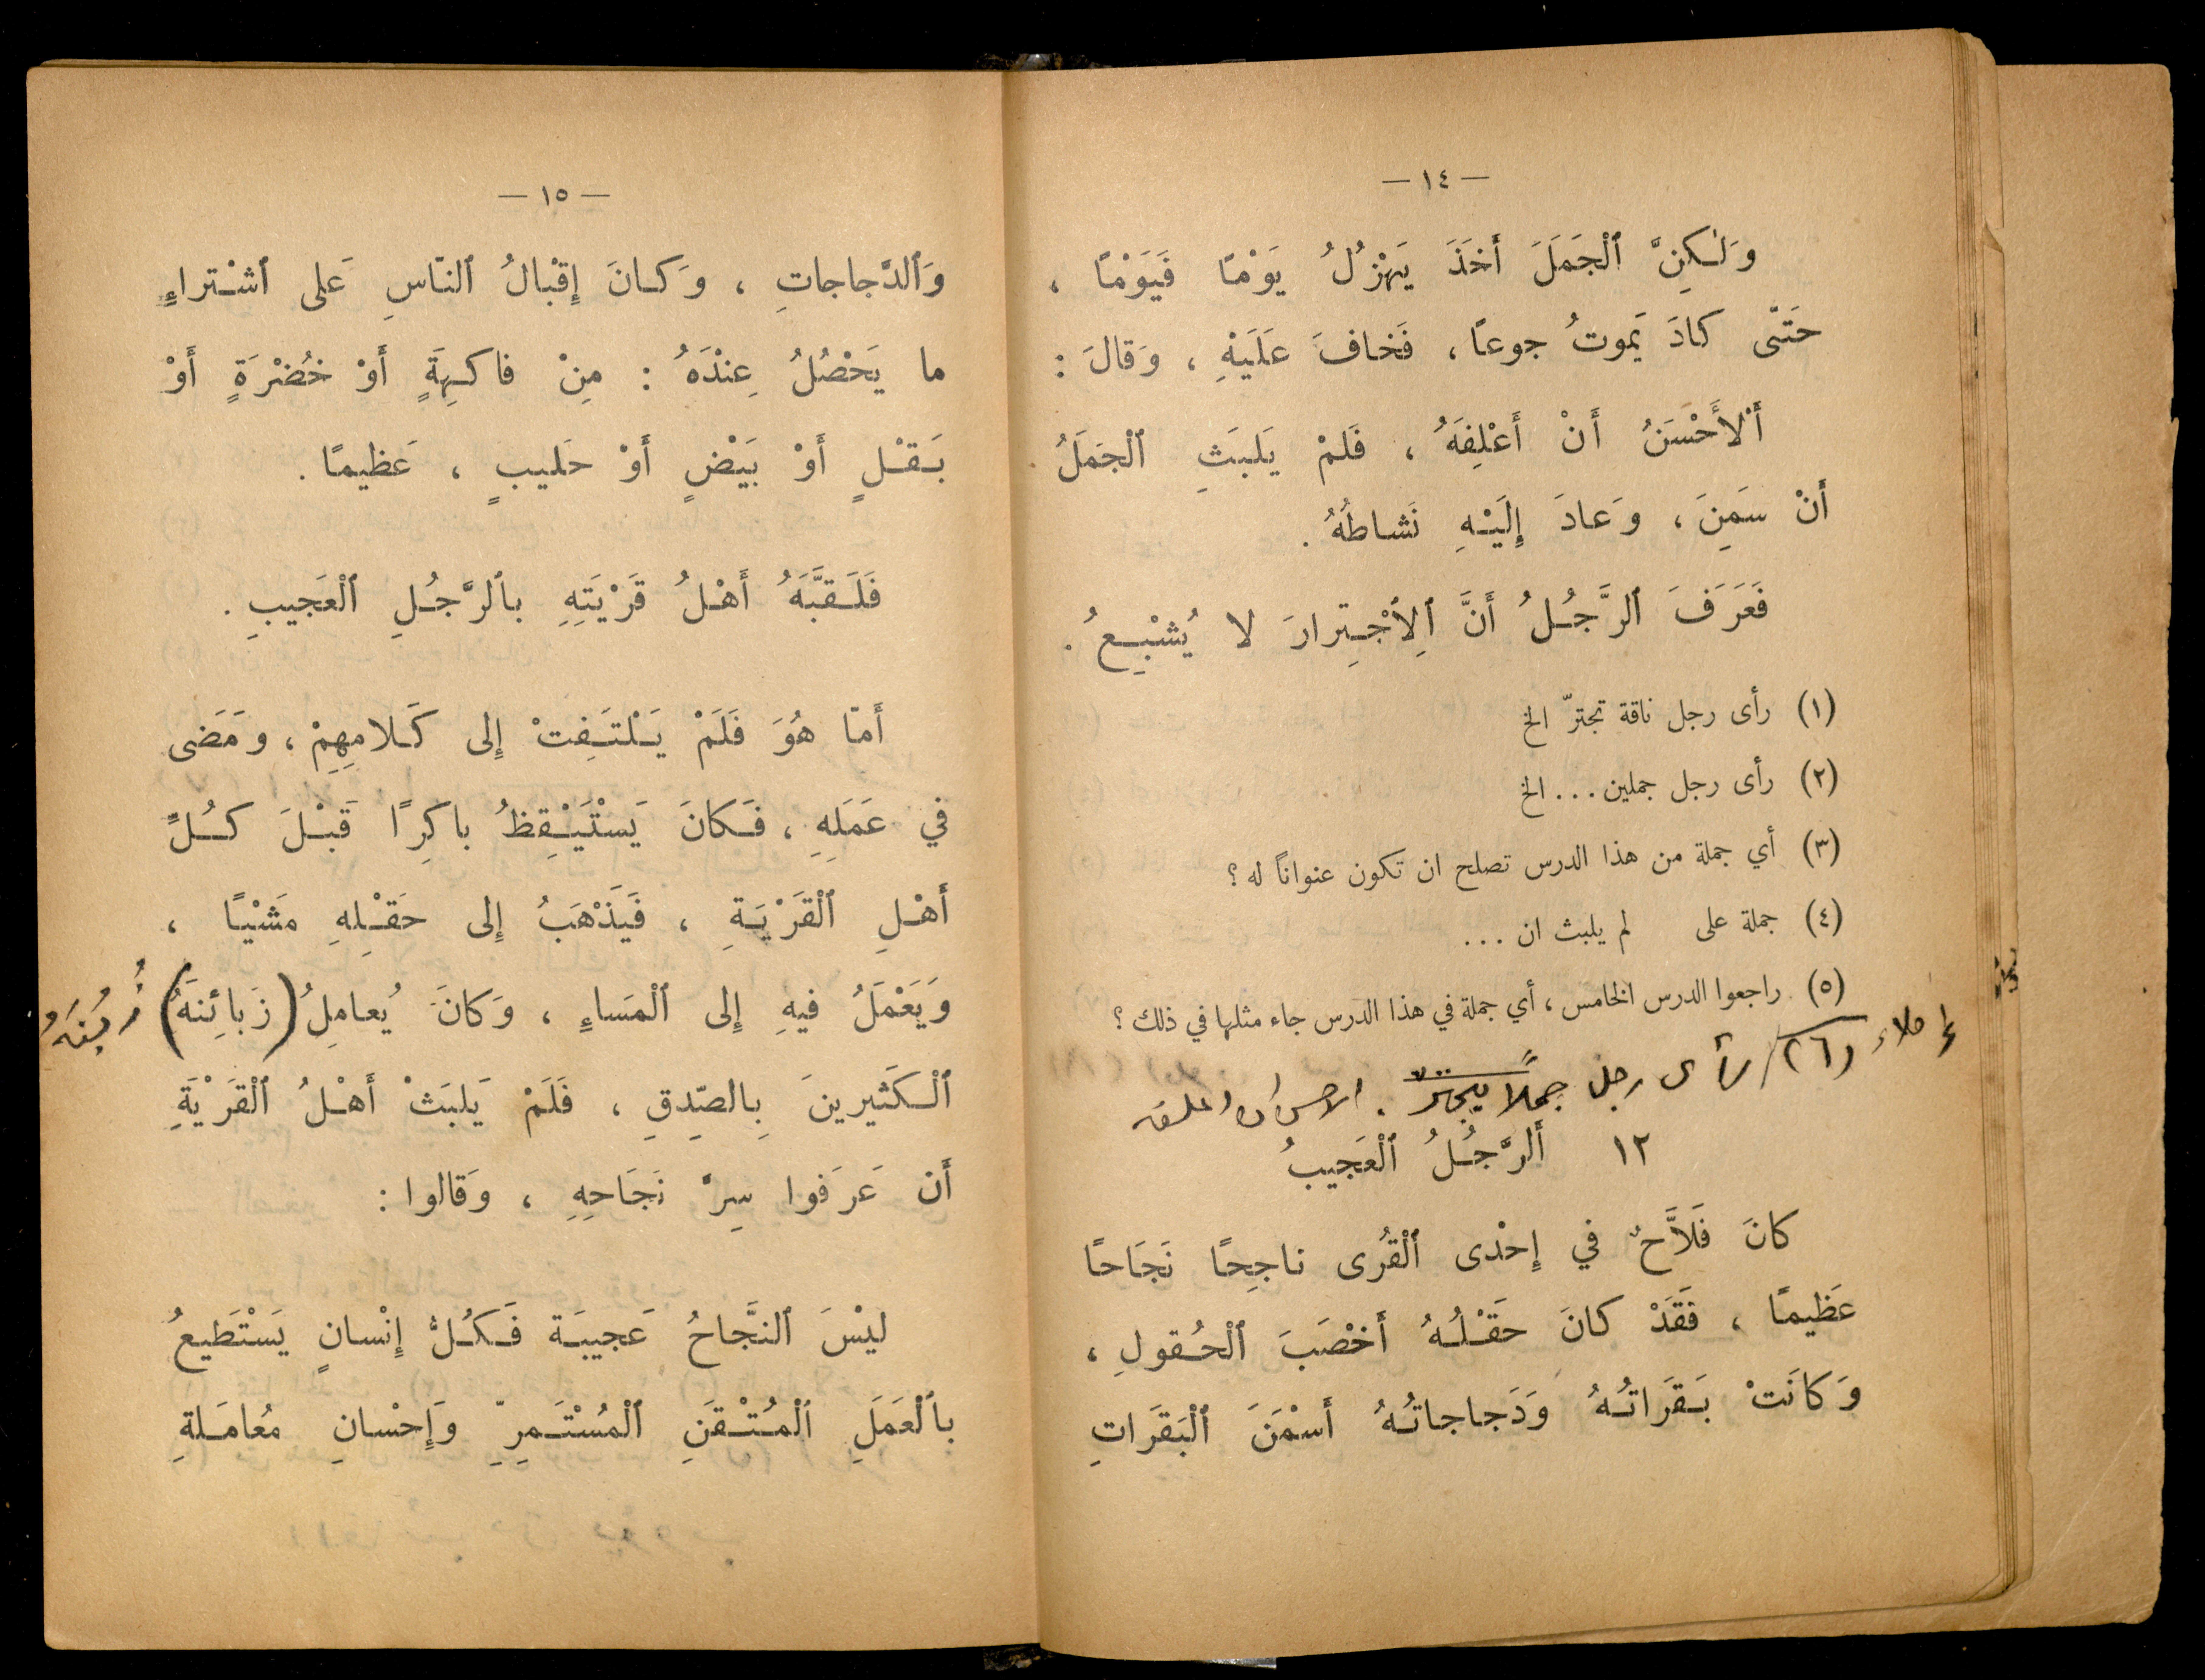 — ١٤ —
وَلٰكِنَّ ٱلْجَمَلَ أَخَذَ يَهْزُلُ يَوْمًا فَيَوْمًا ،
حَتّى كادَ يَموتُ جوعًا ، فَخافَ عَلَيْهِ ، وَقالَ :
أَلْأَحْسَنُ أَنْ أَعْلِفَهُ ، فَلمْ يَلبَثِ ٱلْجَمَلُ
أَنْ سَمِنَ ، وَعادَ إِلَيْهِ نَشاطُهُ .
فَعَرَفَ ٱلرَّجُلُ أَنَّ ٱلِٱجْتِرارَ لا يُشْبِعُ .
(١) رأى رجل ناقة تجترّ الخ
(٢) رأى رجل جملين ... الخ
(٣) أي جملة من هذا الدرس تصلح ان تكون عنوانًا له ؟
(٤) جملة على لم يلبث ان ...
(٥) راجعوا الدرس الخامس ، أي جملة في هذا الدرس جاء مثلها في ذلك ؟
إملاء (٦) رأى رجل جملًا يجترّ . الاحسن أن اعلفه
١٢ أَلرَّجُلُ ٱلْعَجيبُ
كانَ فَلاَّحٌ في إِحْدى ٱلْقُرى ناجِحًا نَجَاحًا
عَظيمًا ، فَقَدْ كانَ حَقْلُهُ أَخْصَبَ ٱلْحُقولِ ،
وَكانَتْ بَقَرَاتُهُ وَدَجاجاتُهُ أَسْمَنَ ٱلْبَقَرَاتِ
— ١٥ —
وَٱلدَّجاجاتِ ، وَكانَ إِقْبالُ ٱلنّاسِ عَلى ٱشْتراءِ
ما يَحْصُلُ عِنْدَهُ : مِنْ فاكِهَةٍ أَوْ خُضْرَةٍ أَوْ
بَقْلٍ أَوْ بَيْضٍ أَوْ حَليبٍ ، عَظيمًا .
فَلَقَّبَهُ أَهْلُ قَرْيَتِهِ بٱلرَّجُلِ ٱلْعَجيبِ .
أَمّا هُوَ فَلَمْ يَلْتَفِتْ إِلى كَلامِهِمْ ، وَمَضَى
في عَمَلِهِ ، فَكانَ يَسْتَيْقِظُ باكِرًا قَبْلَ كُلِّ
أَهْلِ ٱلْقَرْيَةِ ، فَيَذْهَبُ إِلى حَقْلِهِ مَشْيًا ،
وَيَعْمَلُ فيهِ إِلى ٱلْمَساءِ ، وَكانَ يُعامِلُ (زَبائِنَهُ) زُبُنَهُ
ٱلْكَثيرينَ بِالصّدِقِ ، فَلَمْ يَلبَثْ أَهْلُ ٱلْقَرْيَةِ
أَن عَرَفوا سِرَّ نَجَاحِهِ ، وَقالوا :
ليْسَ ٱلنَّجاحُ عَجيبَة فَكُلُّ إِنْسانٍ يَسْتَطيعُ
بٱلْعَمَلِ ٱلْمُتْقَنِ ٱلْمُسْتَمِرِّ وَإِحْسانِ مُعامَلةِ